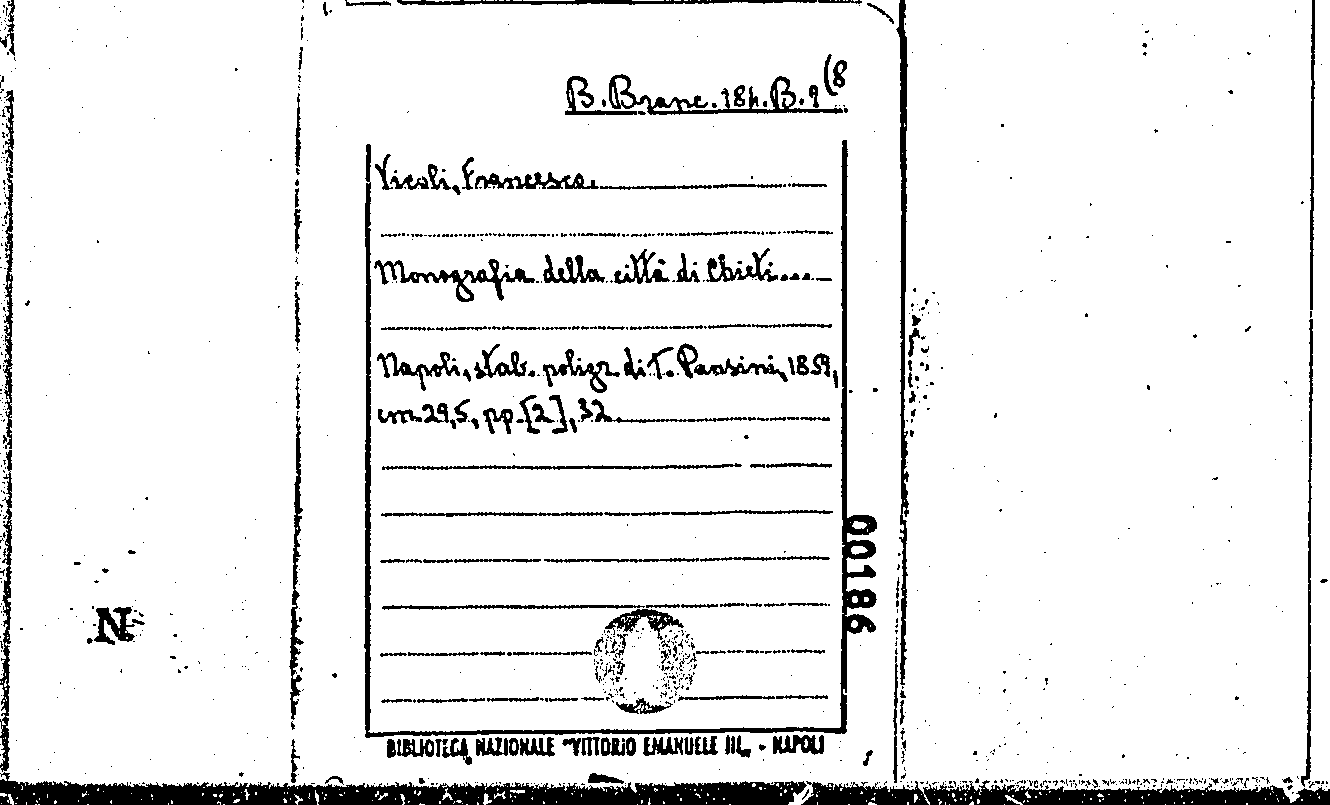 B. Branc. 18h. B. 9 (8
Vicoli, Francesco.
Monografia della città di Chieti...
Napoli, stab. poligr. di T. Pansini, 1859,
cm. 29,5, pp. [2], 32.
00186
N
BIBLIOTECA NAZIONALE "VITTORIO EMANUELE III„ - NAPOLI